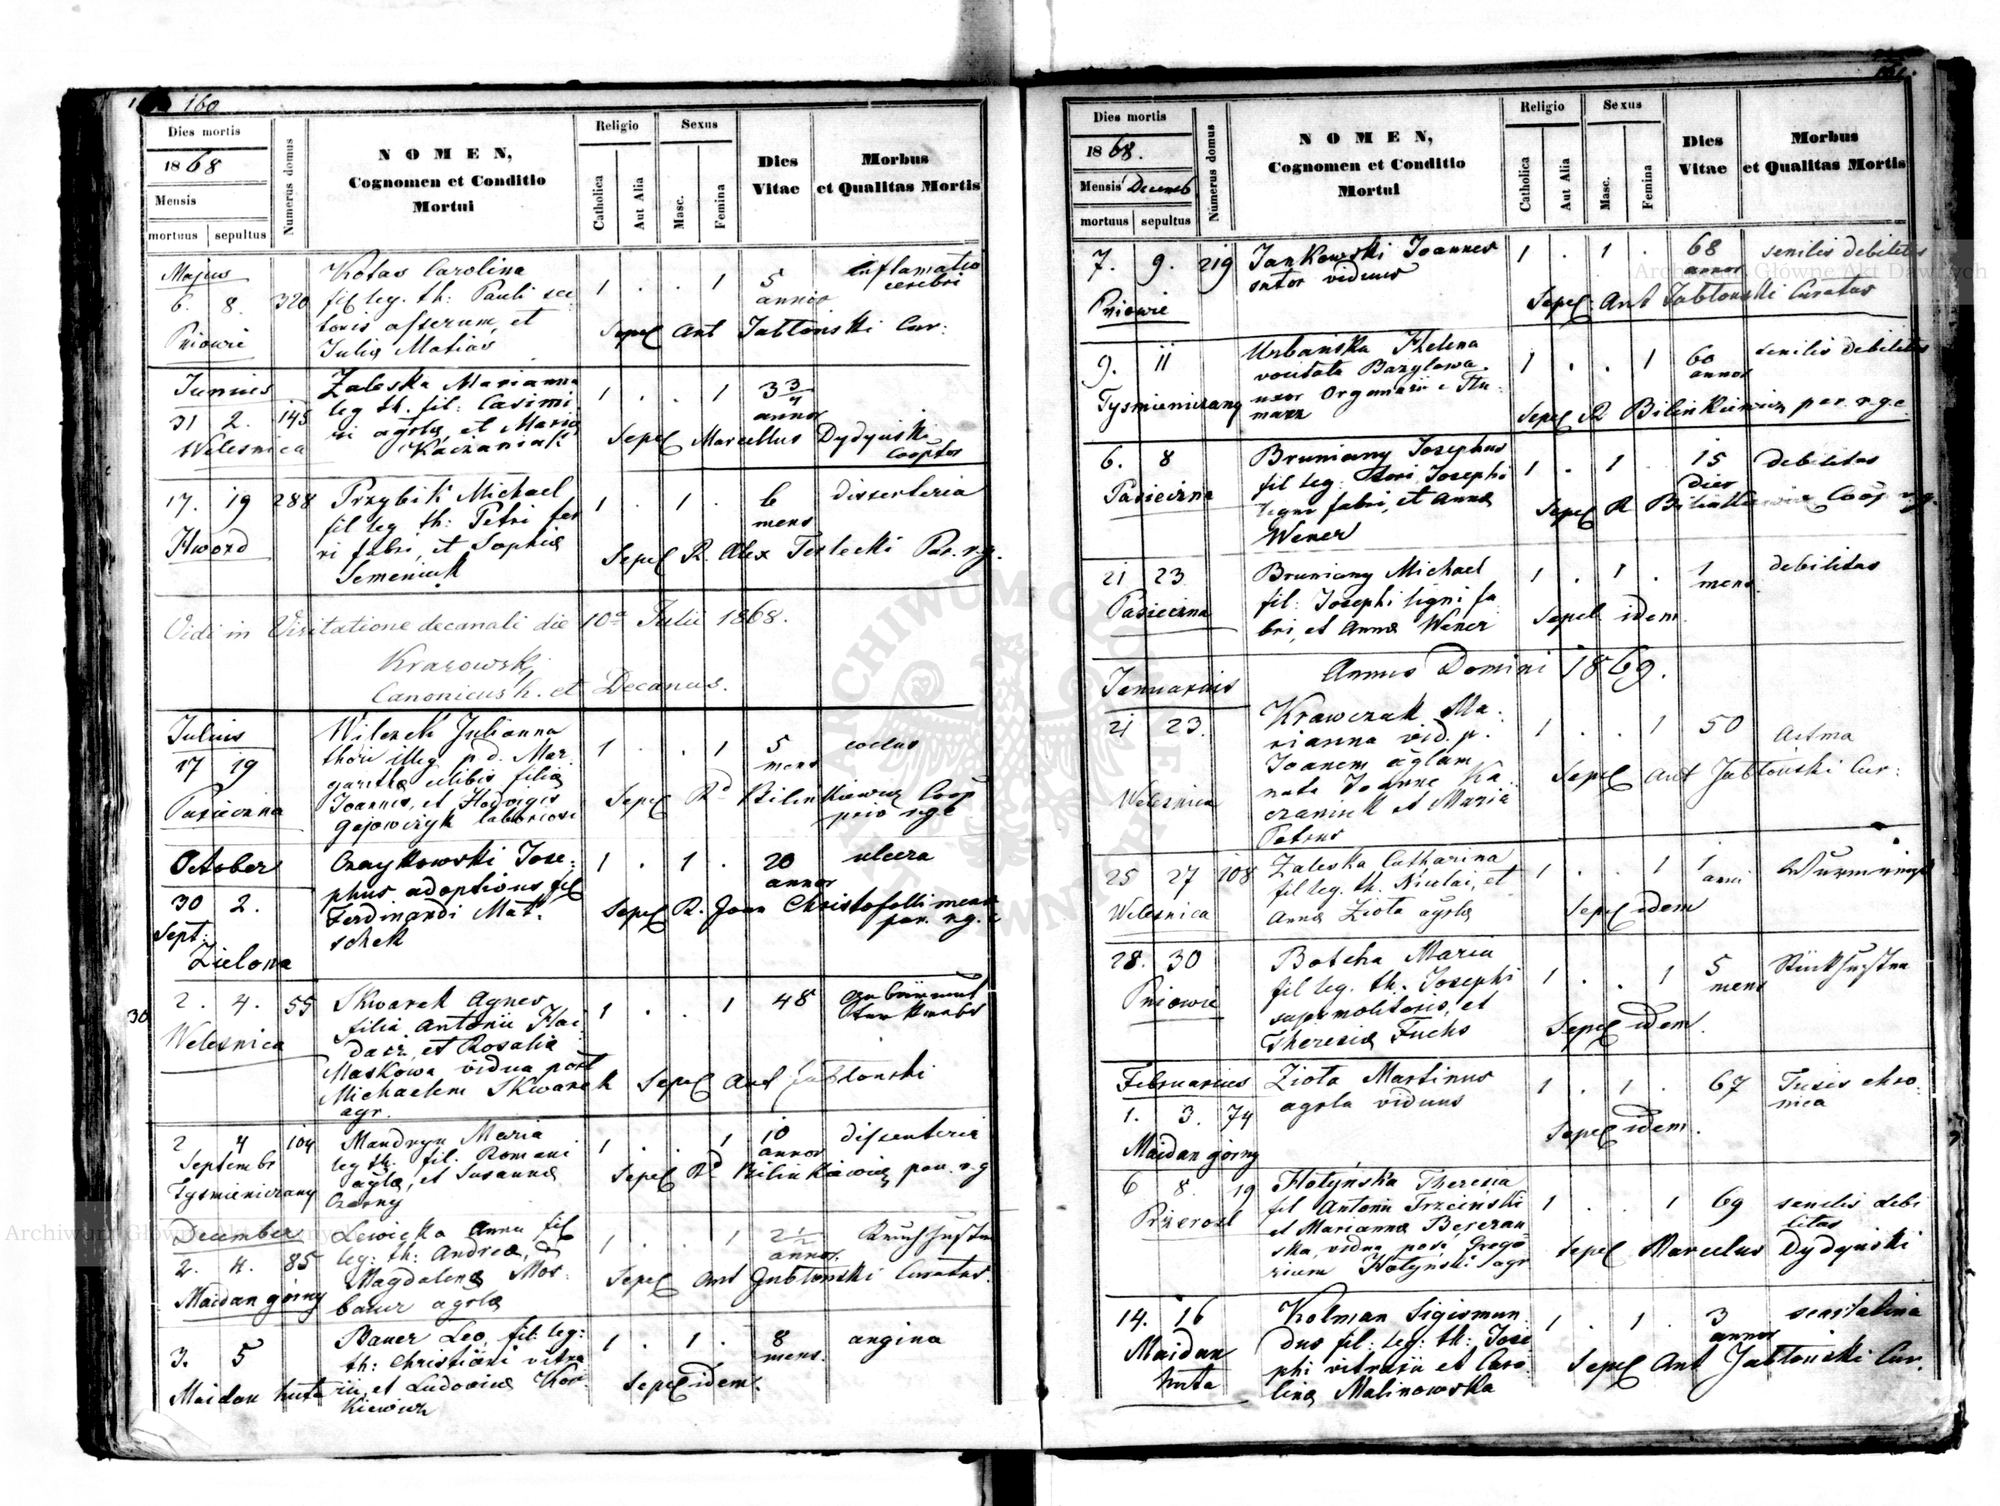 160
Dies mortis
1868
Mensis
mortuus sepultus
Numerus domus
NOMEN,
Cognomen et Conditio
Mortui
Religio
Catholica
Aut Alia
Sexus
Masc.
Femina
Dies
Vitae
Morbus
et Qualitas Mortis
Majus
6. 8. 320
Pniowie
Kotas Carolina
fil leg. th: Pauli
et
Julia Matias
1 . . 1 5
annor
inflamatio
cerebri
Sepel Ant Jabłonski Cur:
Junius
31 2. 145
Welesnica
Zaleska Marianna
leg th. fil: Casimi
ri agrlæ, et Maria
Kaczaniuk
1 . . 1 3 3/4
annor
Sepel Marcellus Dydyński
Cooptor
17. 19 288
Hword
Przybik Michael
fil leg th: Petri fer
ri fabri, et Sophiæ
Semeniuk
1 . 1 . 6
mens
dissenteria
Sepel R. Alex Par. r.g.
Vidi in Visitatione decanali die 10a Julii 1868.
Krasowski
Canonicus h. et Decanus.
Julius
17 19
Pasieczna
Wilczek Julianna
thori illeg p. d. Mar
garethæ celibis filiæ
Joannis, et Hedvigis
Gajowczyk laboriosi
1 . . 1 5
mens
Sepel Rd Bilinkiewicz Coop
r.g.c
October
30 2.
Sept:
Zielona
Czaykowski Jose:
phus adoptivus fil
Ferdinandi Mat:
schek
1 . 1 . 20
annor
ulcera
Sepel R. Joan Christofolli
par. r.g.
30
2. 4. 55
Welesnica
Skwarek Agnes
filia Antonii Hai
dacz, et Rosalia
Maskowa vidua post
Michaelem Skwarek
agr.
1 . . 1 48
Sepel Ant Jabłonski
2 4 104
Septembr
Tysmieniczany
Mandryn Maria
leg th. fil. Romani
agrlæ, et Susannæ
Czerny
1 . . 1 10
annor
dissenteria
Sepel Rd Bilinkiewicz par. r.g
December
2. 4. 85
Maidan górny
Lewicka Anna fil
leg: th: Andreæ, &
Magdalenæ Mos:
bauer agrlæ
1 . . 1 2 1/2
annor.
Sepel Ant Jabłonski Curatus.
3. 5
Maidan huta
Bauer Leo, fil: leg:
th: Christiani vitra
rii, et Ludovicæ Kor
kiewicz
1 . 1 . 8
mens.
angina
Sepel idem.
161.
Dies mortis
1868.
Mensis Decemb
mortuus sepultus
Numerus domus
NOMEN,
Cognomen et Conditio
Mortui
Religio
Catholica
Aut Alia
Sexus
Masc.
Femina
Dies
Vitae
Morbus
et Qualitas Mortis
7. 9. 219
Pniowie
Jankowski Joannes
sutor viduus
1 . 1 . 68
annor
senilis debilitas
Sepel Ant Jabłonski Curatus
9. 11
Tysmieniczany
Urbańska Helena
vocitata Bazylowa
uxor Organarii e Tłu
macz
1 . . 1 60
annor
senilis debilitas
Sepel R Bilinkiewicz par. r.g.c.
6. 8
Pasieczna
Bruniany Josephus
fil leg: thori Josephi
legni fabri, et Annæ
Wener
1 . 1 . 15
dier
debilitas
Sepel R Bilinkiewicz Coop. r.g.
21 23
Pasieczna
Bruniany Michael
fil: Josephi legni fa
bri, et Annæ Wener
1 . 1 . 1
mens
debilitas
Sepel idem.
Januarius
Annus Domini 1869.
21 23.
Welesnica
Krawczuk Ma:
rianna vid. p.
Joanem aglam
nata Joanne Ka:
czaniuk et Maria
Petrus
1 . . 1 50
Astma
Sepel Ant Jabłonski Cur:
25 27 108
Welesnica
Zaleska Catharina
fil leg. th. Nicolai, et
Annæ Ziota agrlæ
1 . . 1 1
anni
Sepel idem
28. 30
Pniowie
Botcha Maria
fil leg. th. Josephi
supermolitoris, et
Theresiæ Fuchs
1 . . 1 5
mens
Stickhusten
Sepel idem.
Februarius
1. 3. 74
Maidan górny
Ziota Martinus
agrla viduus
1 . 1 . 67
Tusis chro
nica
Sepel idem.
6 8. 19
Przerosl
Hotynska Theresia
fil Antonii Trzcinski
et Mariannæ Berezan
ska, vidua post Grego
rium Hotynski agr
1 . . 1 69
senilis debi
litas
Sepel Marcelus Dydyński
14. 16
Maidan
huta
Kolman Sigismun
dus fil: leg: th: Jose
phi vitrarii et Caro
linæ Malinowska
1 . 1 . 3
annor
scarlatina
Sepel Ant Jabłonski Cur.
Archiwum Główne Akt Dawnych
Archiwum Główne Akt Dawnych